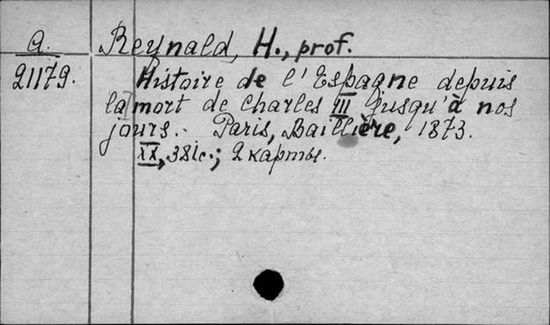 a. Reynald, H., prof.
21179. Histoire de l'Espagne depuis
la mort de Charles III jusqu'à nos
jours. Paris, Baillière, 1873.
XX, 381c.; 2 карты.